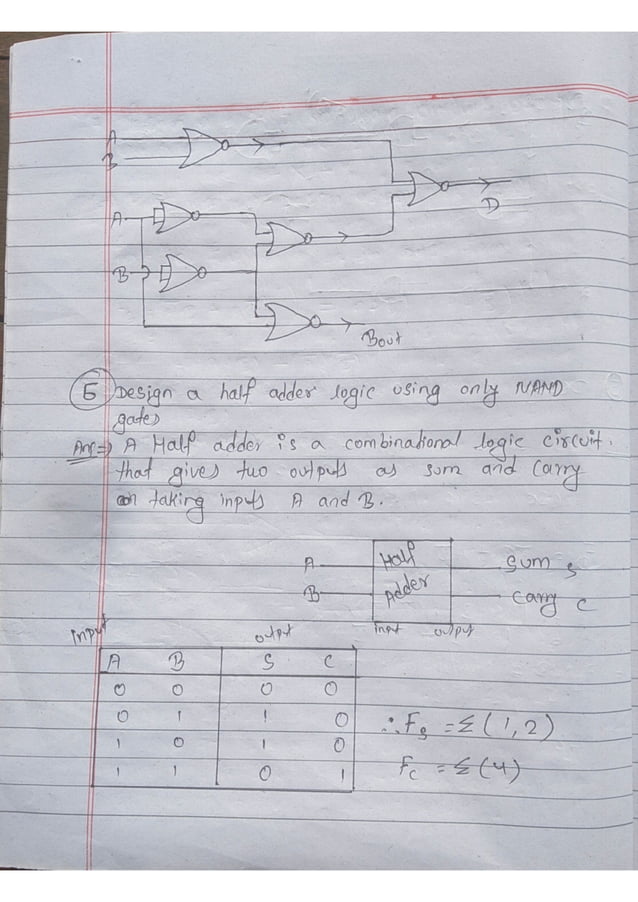 A
B
D
A
B
Bout
5 Design a half adder logic using only NAND
gates
Ans⇒ A Half adder is a combinational logic circuit.
that gives two outputs as sum and carry
on taking inputs A and B.
A Half Sum S
B Adder Carry C
input output
input output
A B S C
0 0 0 0
0 1 1 0
1 0 1 0
1 1 0 1
∴ Fs = Σ(1,2)
Fc = Σ(4)